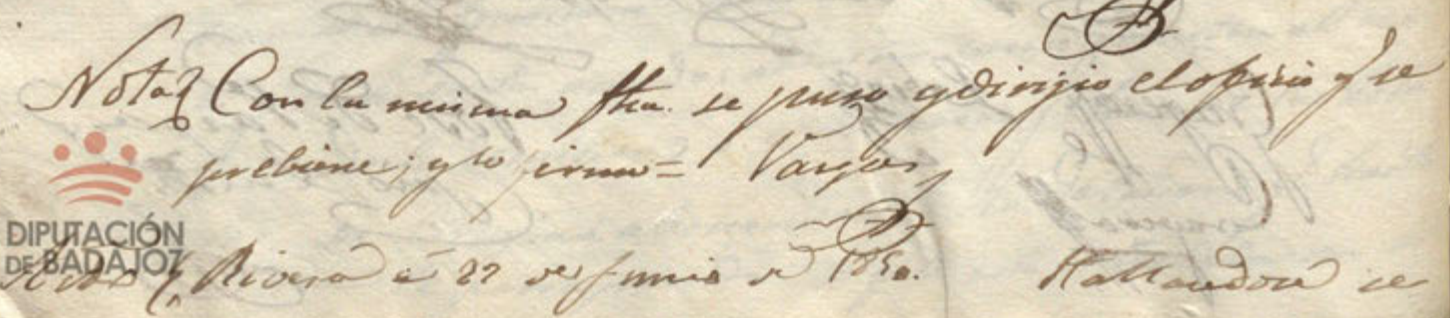 Nota Con la misma fha. se puso y dirijio el ofisio q se
prebiene; y lo firmo = Vargas
DIPUTACIÓN
DE BADAJOZ
Rivera á 22 de Junio de 1850. Hallandose se